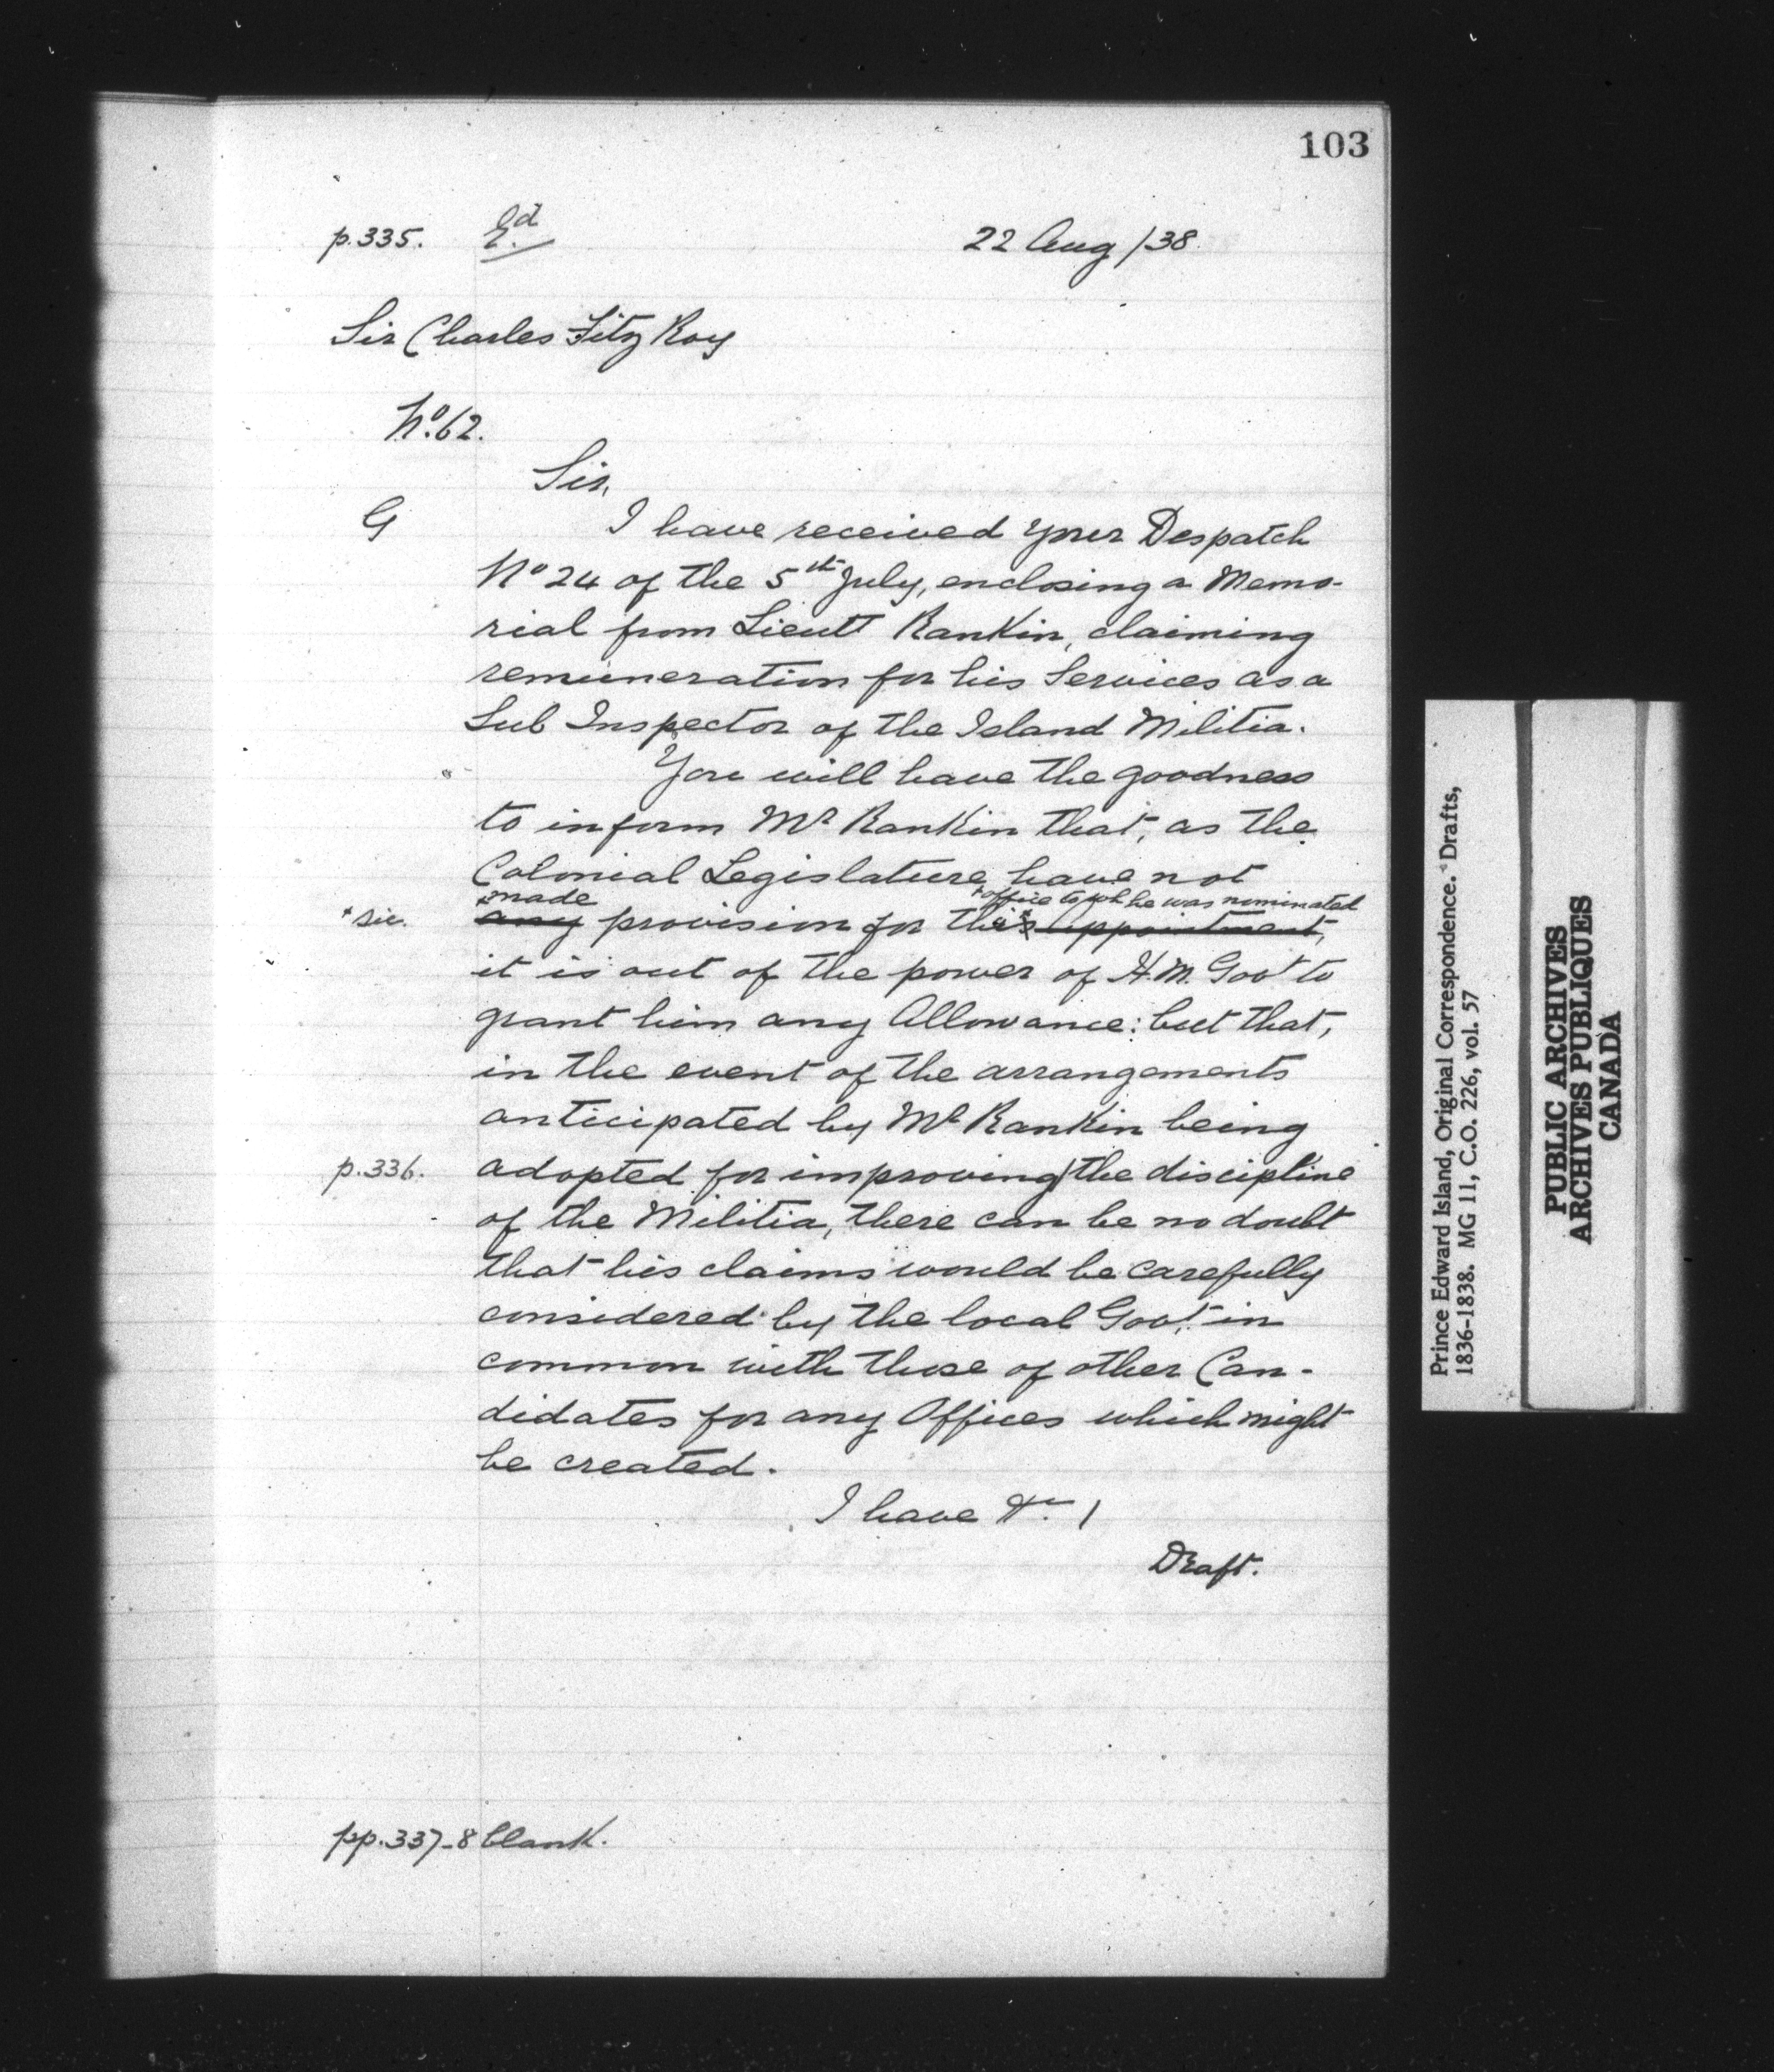 103
p.335. Ed 22 Aug /38.
Sir Charles Fitz Roy
No. 62.
Sir,
G I have received your Despatch
No 24 of the 5th July, enclosing a Memo-
rial from Lieutt Rankin, claiming
remuneration for his Services as a
Sub Inspector of the Island Militia.
You will have the goodness
to inform Mr Rankin that, as the
Colonial Legislature have not
made +office to wh he was nominated
+sic. any provision for this+ appointment,
it is out of the power of H.M. Govt to
grant him any Allowance: but that,
in the event of the arrangements
anticipated by Mr Rankin being
p.336. adopted for improving/the discipline
of the Militia, there can be no doubt
that his claims would be carefully
considered by the local Govt. in
common with those of other Can-
didates for any Offices which might
be created.
I have &c. /
Draft.
pp.337-8 blank.
Prince Edward Island, Original Correspondence. Drafts,
1836-1838. MG 11, C.O. 226, vol. 57
PUBLIC ARCHIVES
ARCHIVES PUBLIQUES
CANADA